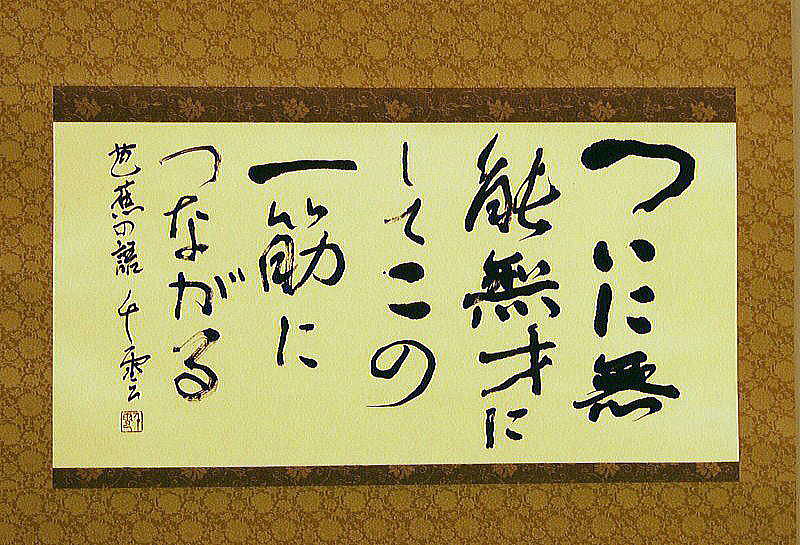 つひに無
能無才に
してこの
一筋に
つながる
芭蕉の語 千雲